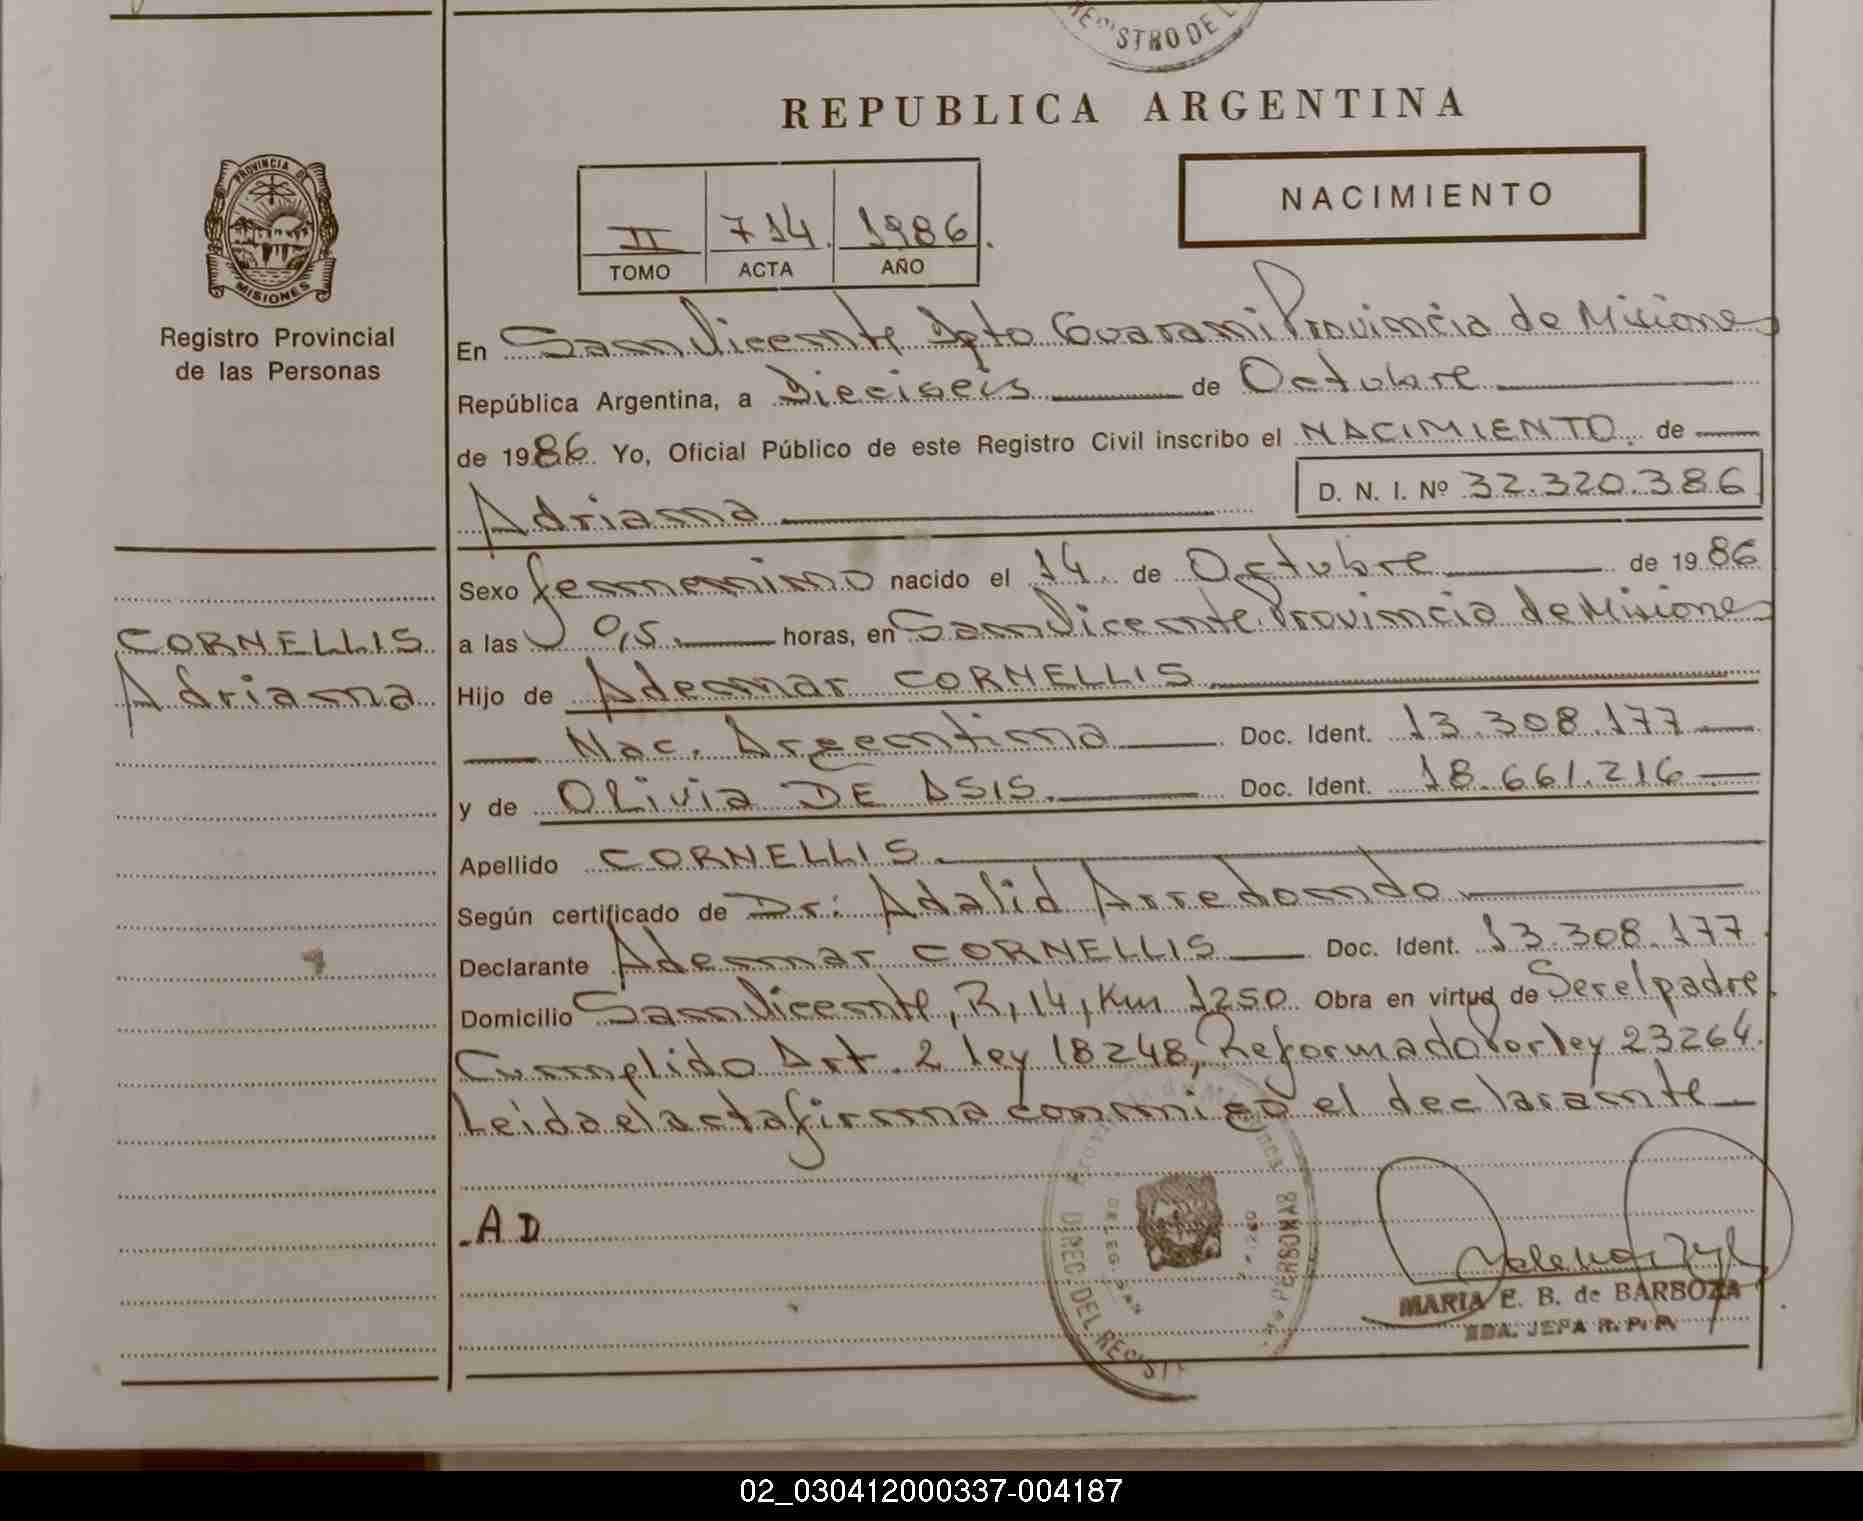 REPUBLICA ARGENTINA
NACIMIENTO
II 714. 1986.
TOMO ACTA AÑO
PROVINCIA DE
MISIONES
Registro Provincial
de las Personas
En San Vicente Dpto Guarani Provincia de Misiones
República Argentina, a Dieciseis de Octubre
de 1986. Yo, Oficial Público de este Registro Civil inscribo el NACIMIENTO de
Adriana
D. N. I. Nº 32.320.386
Sexo femenino nacido el 14 de Octubre de 1986
a las 0,5 horas, en San Vicente Provincia de Misiones
Hijo de Ademar CORNELLIS
Nac. Argentina Doc. Ident. 13.308.177
y de Olivia DE ASIS. Doc. Ident. 18.661.216
Apellido CORNELLIS
Según certificado de Dr: Adalid Arredondo
Declarante Ademar CORNELLIS Doc. Ident. 13.308.177
Domicilio San Vicente, R, 14, Km 1250 Obra en virtud de Ser el padre
Cumplido Art. 2 ley 18248, Reformado Por ley 23264.
Leida el acta firma conmigo el declarante
CORNELLIS
Adriana
AD
DIREC. DEL REGIST
PERSONAS
MARIA E. B. de BARBOZA
JEFA R. P. P.
02_030412000337-004187